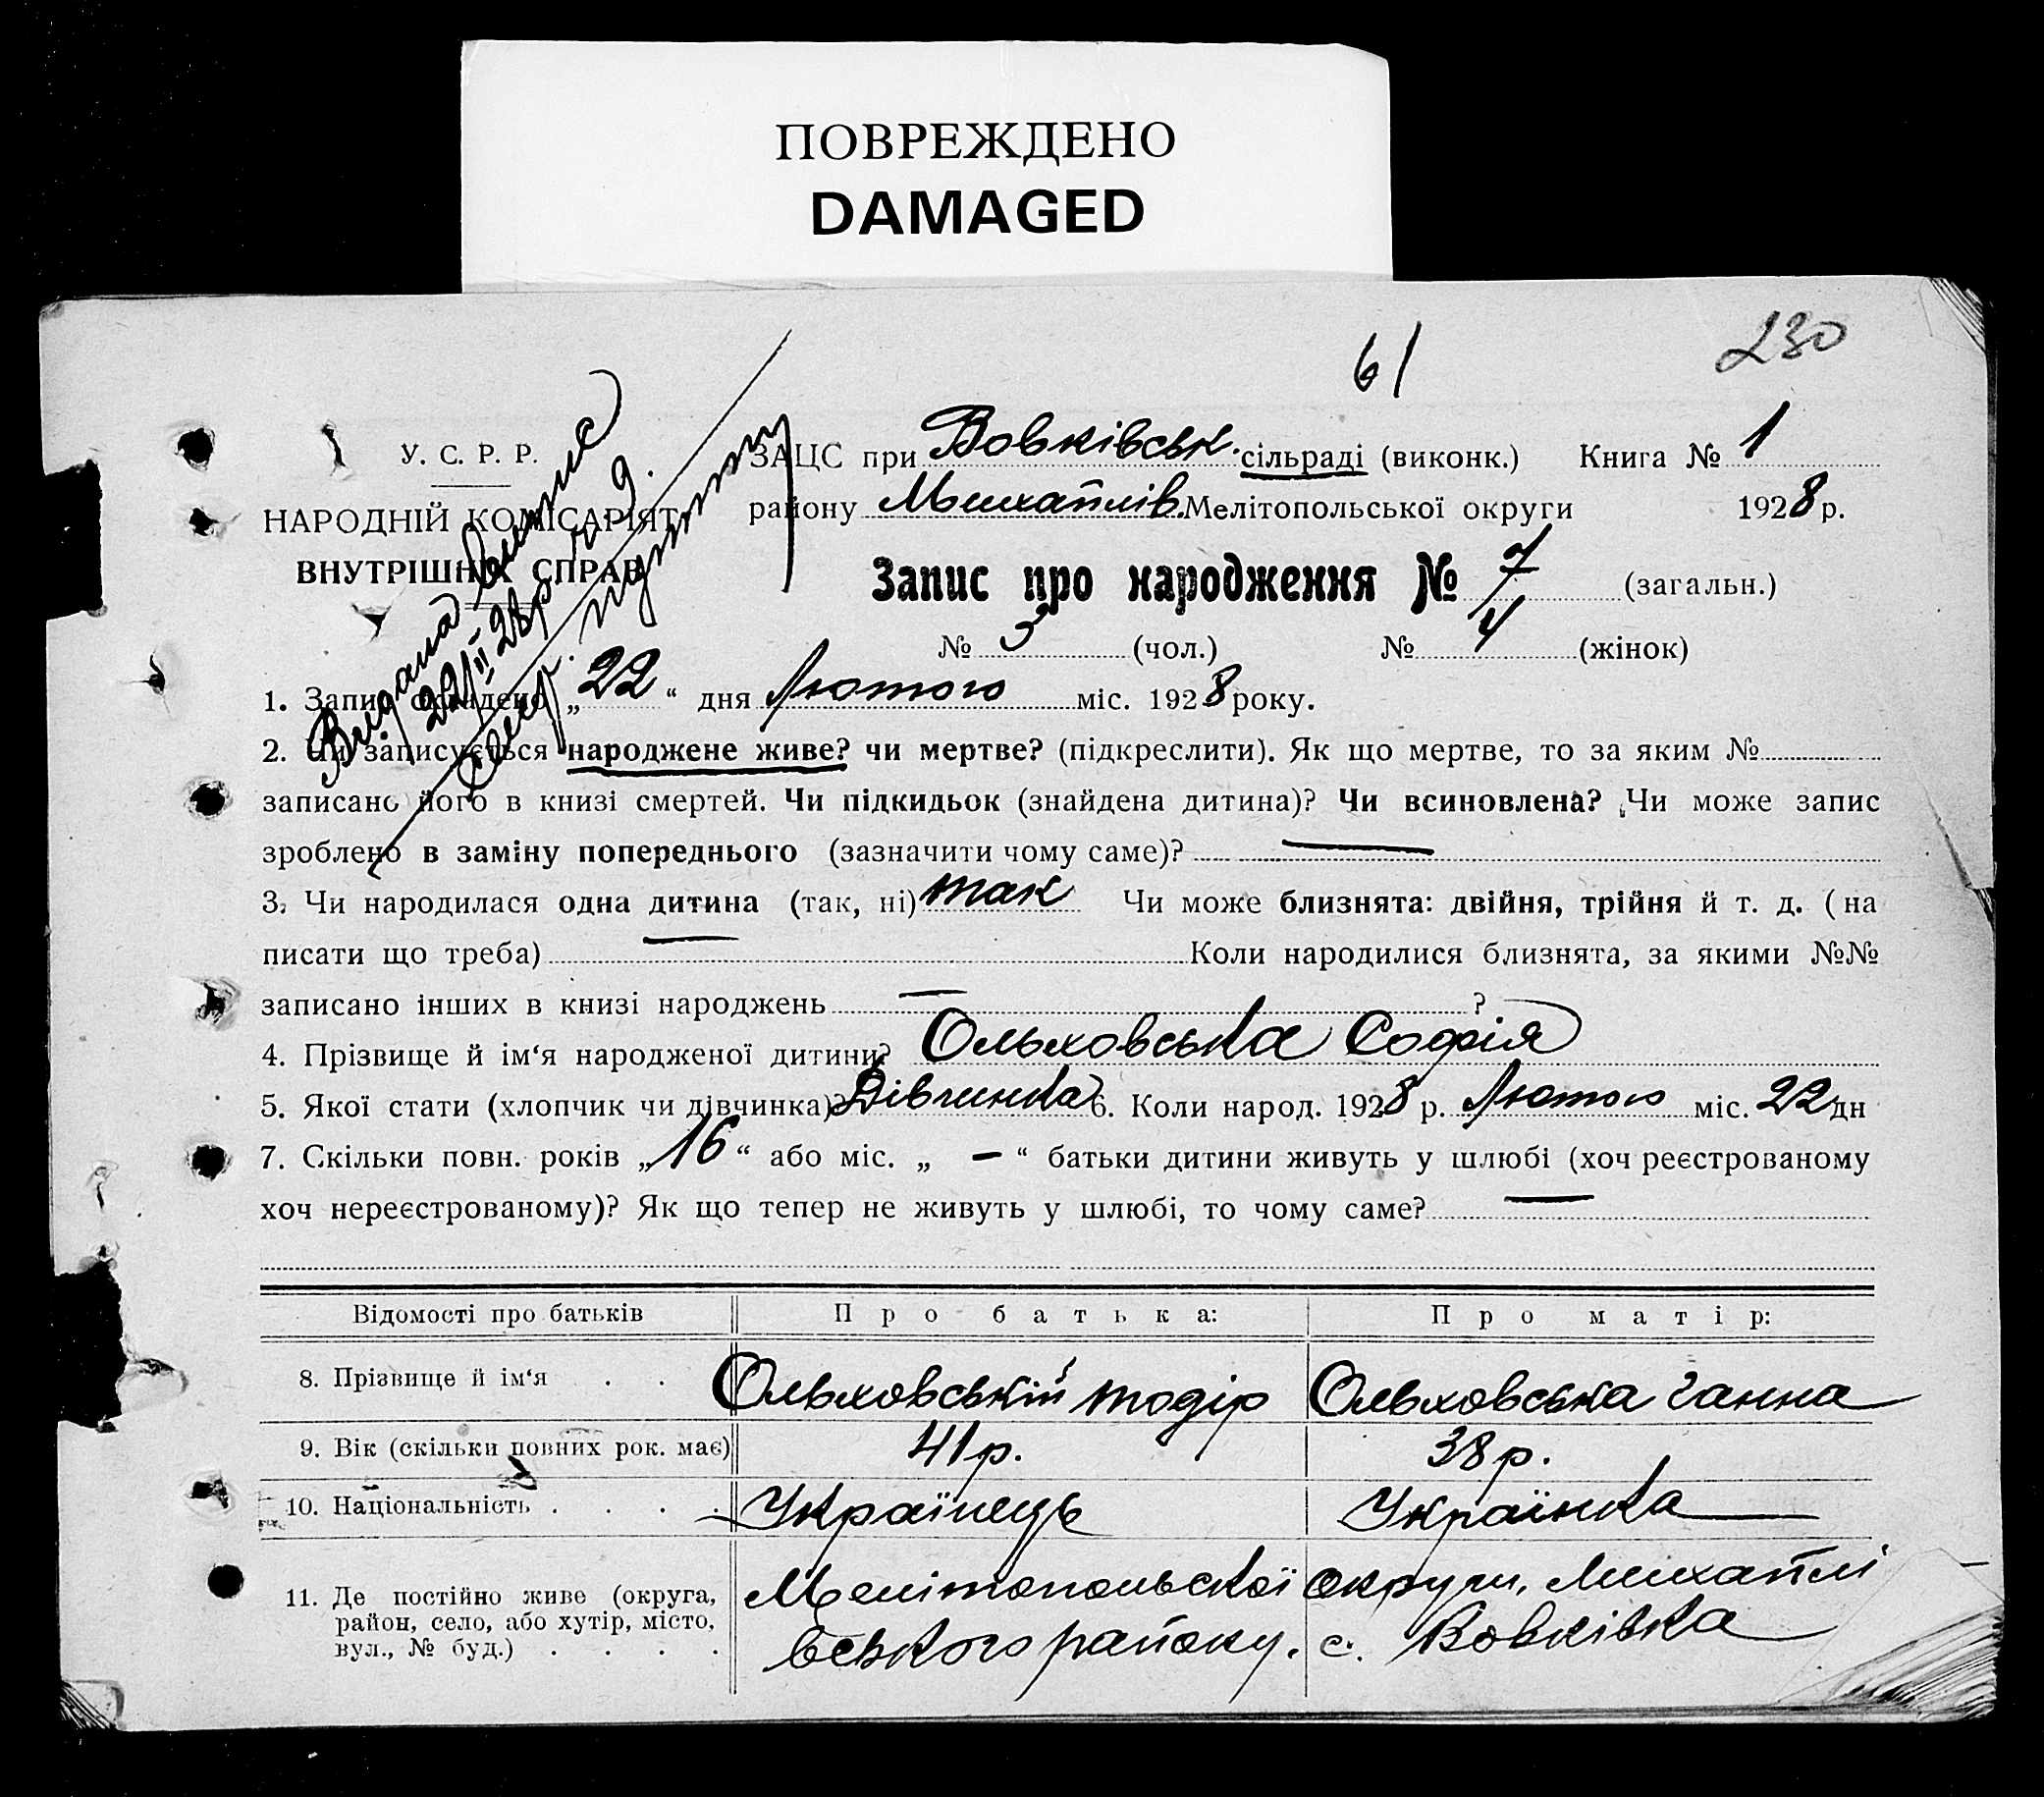 ПОВРЕЖДЕНО
DAMAGED
61
230
У. С. Р. Р.
НАРОДНІЙ КОМІСАРІЯТ
ВНУТРІШНІХ СПРАВ
Видана виписка
22/II 28р.
ЗАЦС при Вовківськ. сільраді (виконк.) Книга № 1
району Михайлів. Мелітопольської округи 1928 р.
Запис про народження № 7 (загальн.)
№ 3 (чол.) № 4 (жінок)
1. Запис складено „22“ дня Лютого міс. 1928 року.
2. Чи записується народжене живе? чи мертве? (підкреслити). Як що мертве, то за яким №
записано його в книзі смертей. Чи підкидьок (знайдена дитина)? Чи всиновлена? Чи може запис
зроблено в заміну попереднього (зазначити чому саме)? —
3. Чи народилася одна дитина (так, ні) так Чи може близнята: двійня, трійня й т. д. (на
писати що треба) — Коли народилися близнята, за якими №№
записано інших в книзі народжень — ?
4. Прізвище й ім‘я народженої дитини? Ольховська Софія
5. Якої стати (хлопчик чи дівчинка)? Дівчинка 6. Коли народ. 1928 р. Лютого міс. 22 дн
7. Скільки повн. років „16“ або міс. „ — “ батьки дитини живуть у шлюбі (хоч реєстрованому
хоч нереєстрованому)? Як що тепер не живуть у шлюбі, то чому саме? —
Відомості про батьків Про батька: Про матір:
8. Прізвище й ім‘я . . Ольховській Тодір Ольховська Ганна
9. Вік (скільки повних рок. має) 41 р. 38 р.
10. Національність . . . . Українець Українка
11. Де постійно живе (округа, район, село, або хутір, місто, вул., № буд.) . . . . Мелітопольської округи, Михайлі
вського району. с. Вовківка